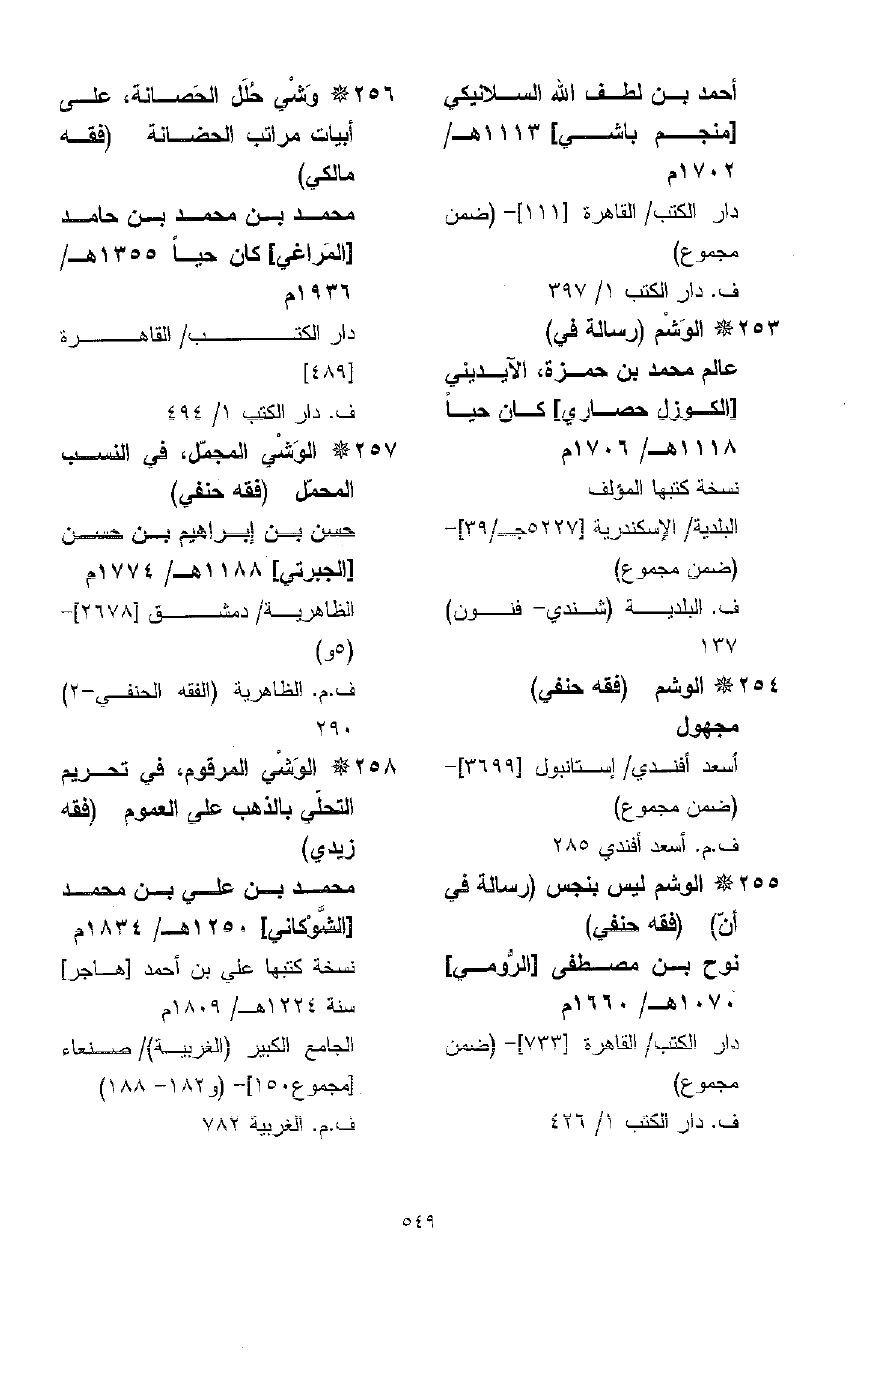 أحمد بن لطف الله السلانيكي
[منجم باشي] ١١١٣هـ/
١٧٠٢م
دار الكتب/ القاهرة [١١١]- (ضمن
مجموع)
ف. دار الكتب ١/ ٣٩٧
٢٥٣* الوَشْم (رسالة في)
عالم محمد بن حمزة، الآيديني
[الكوزل حصاري] كان حياً
١١١٨هـ/ ١٧٠٦م
نسخة كتبها المؤلف
البلدية/ الإسكندرية [٥٢٢٧جـ/٣٩]-
(ضمن مجموع)
ف. البلدية (شندي- فنون)
١٣٧
٢٥٤* الوشم (فقه حنفي)
مجهول
أسعد أفندي/ إستانبول [٣٦٩٩]-
(ضمن مجموع)
ف.م. أسعد أفندي ٢٨٥
٢٥٥* الوشم ليس بنجس (رسالة في
أنّ) (فقه حنفي)
نوح بن مصطفى [الرُّومي]
١٠٧٠هـ/ ١٦٦٠م
دار الكتب/ القاهرة [٧٣٣]- (ضمن
مجموع)
ف. دار الكتب ١/ ٤٢٦
٢٥٦* وَشْي حُلَل الحَصانة، على
أبيات مراتب الحضانة (فقه
مالكي)
محمد بن محمد بن حامد
[المَراغي] كان حياً ١٣٥٥هـ/
١٩٣٦م
دار الكتب/ القاهرة
[٤٨٩]
ف. دار الكتب ١/ ٤٩٤
٢٥٧* الوَشْي المجمّل، في النسب
المحمّل (فقه حنفي)
حسن بن إبراهيم بن حسن
[الجبرتي] ١١٨٨هـ/ ١٧٧٤م
الظاهرية/ دمشق [٢٦٧٨]-
(٥و)
ف.م. الظاهرية (الفقه الحنفي-٢)
٢٩٠
٢٥٨* الوَشْي المرقوم، في تحريم
التحلّي بالذهب على العموم (فقه
زيدي)
محمد بن علي بن محمد
[الشَّوْكاني] ١٢٥٠هـ/ ١٨٣٤م
نسخة كتبها علي بن أحمد [هاجر]
سنة ١٢٢٤هـ/ ١٨٠٩م
الجامع الكبير (الغربية)/ صنعاء
[مجموع١٥٠]- (و١٨٢- ١٨٨)
ف.م. الغربية ٧٨٢
٥٤٩